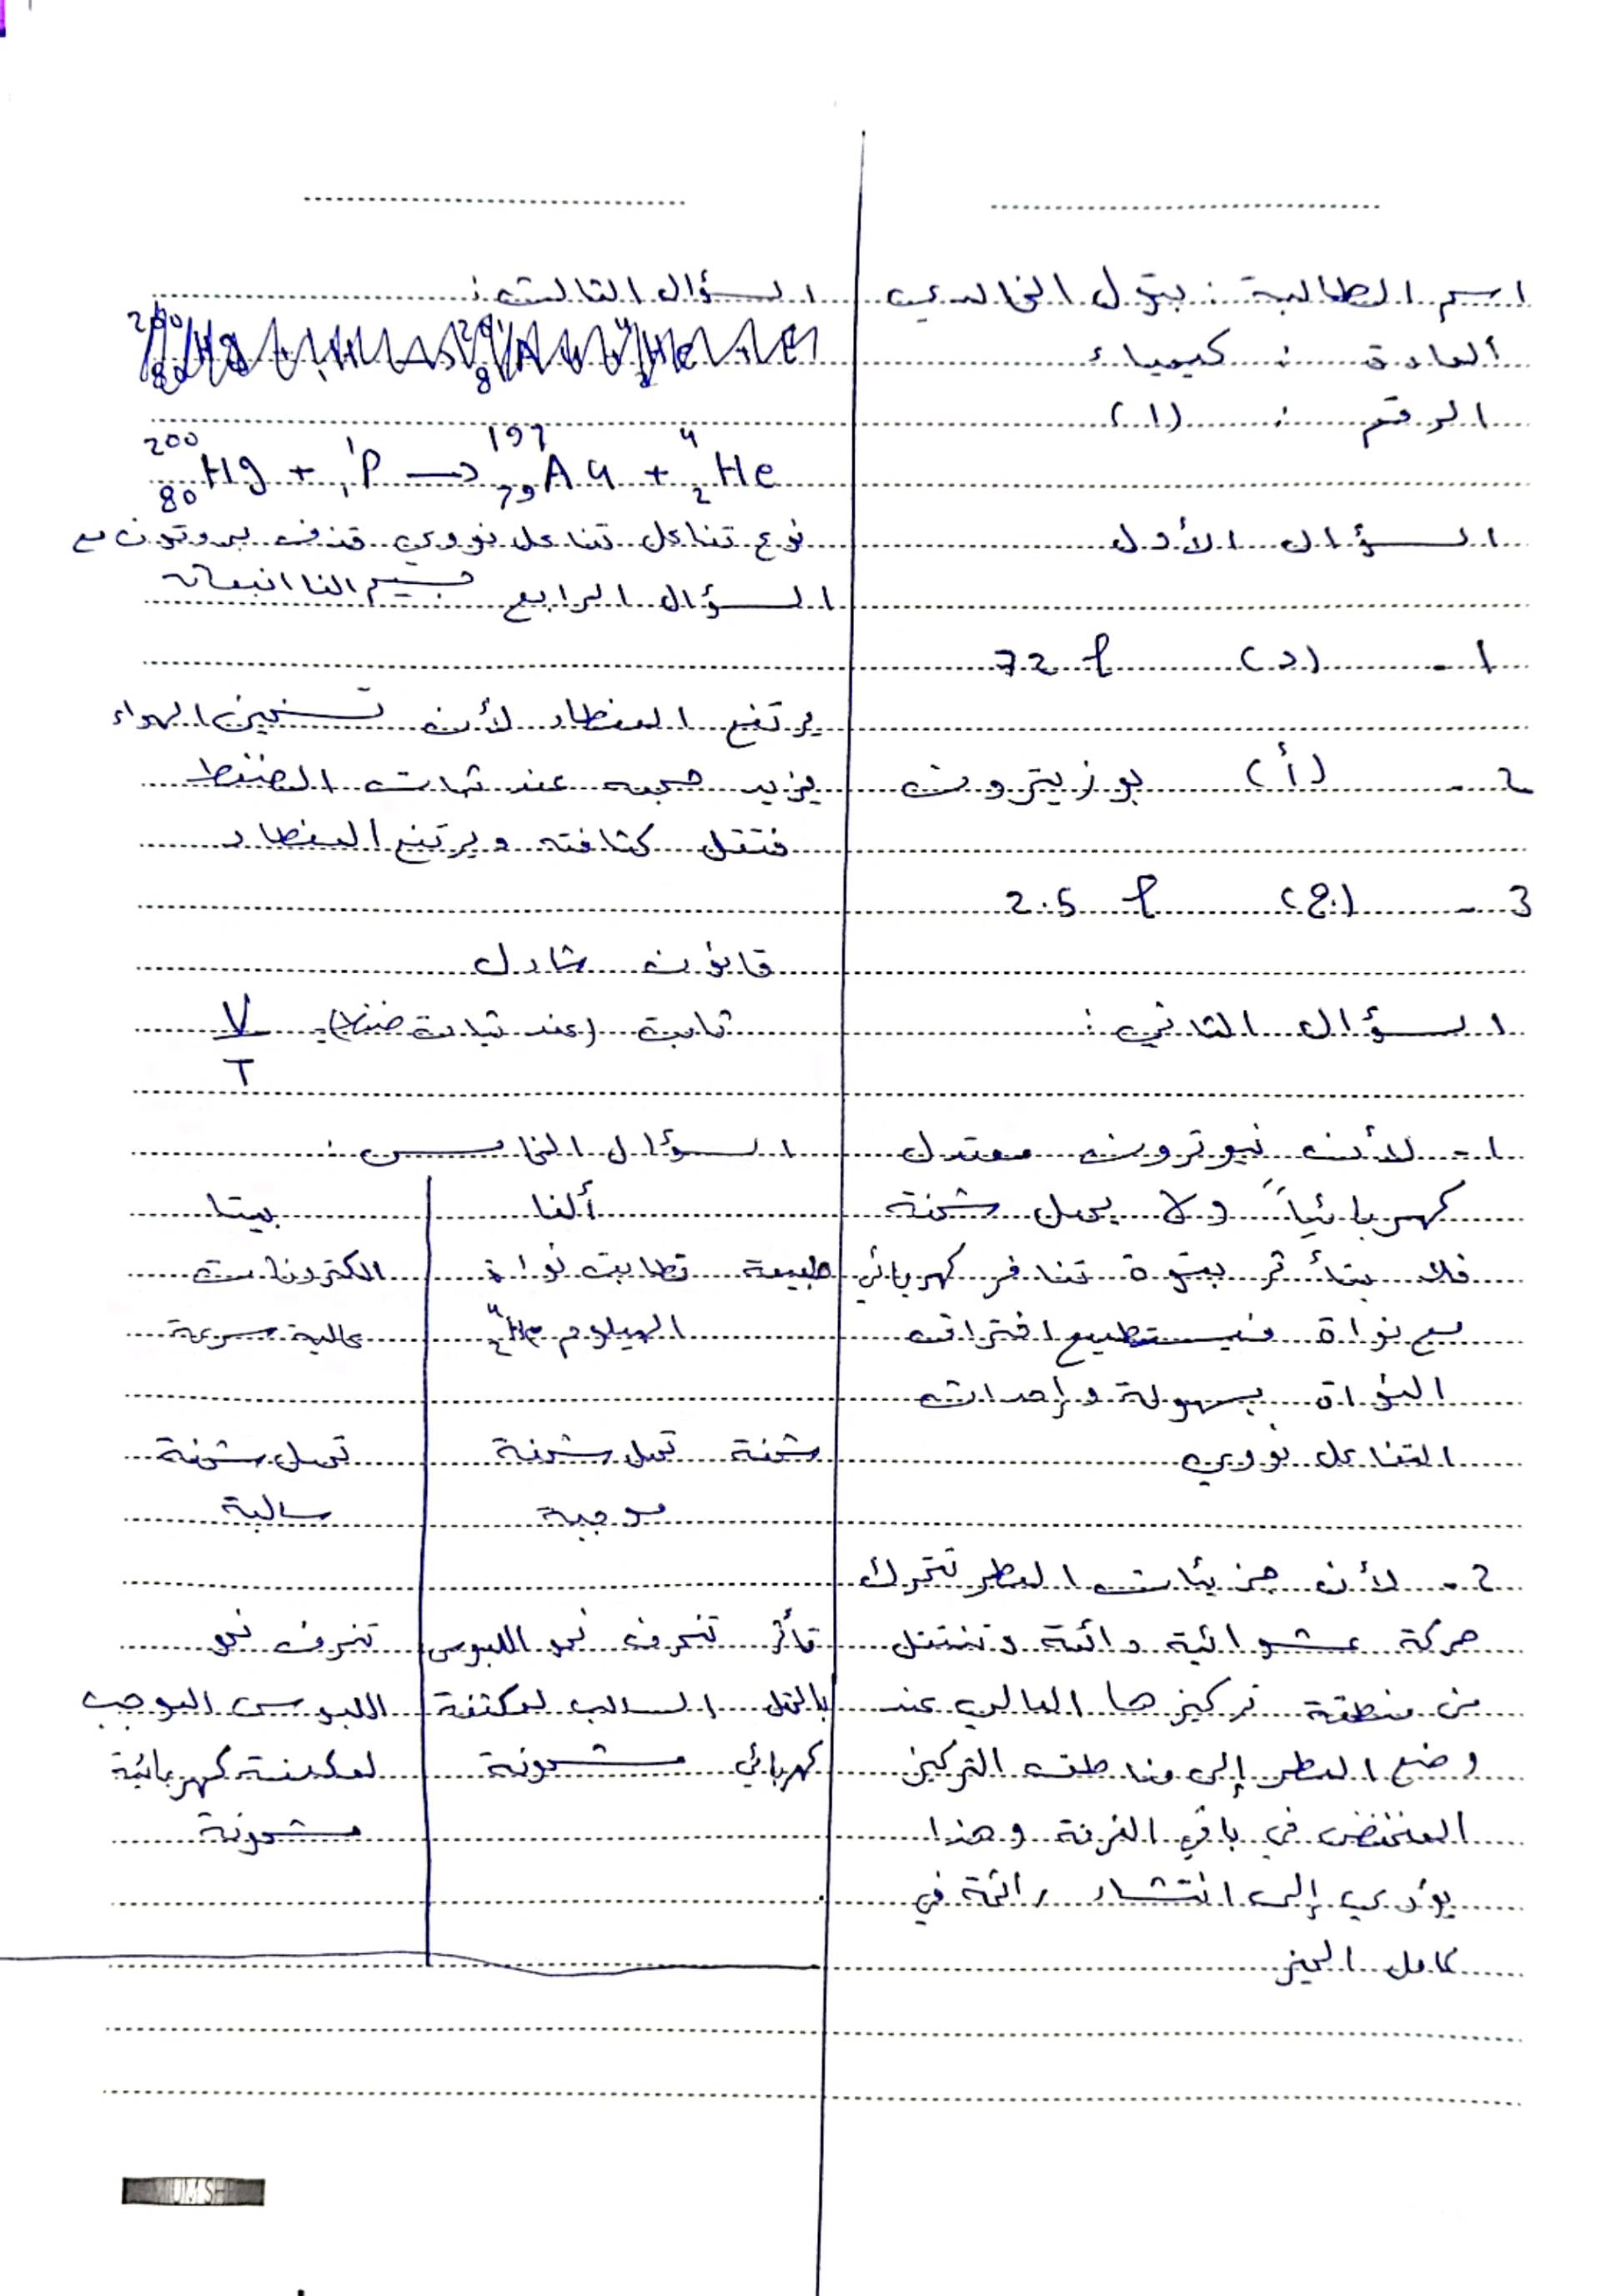 اسم الطالبة : بتول الخالدي
المادة : كيمياء
الرقم : (١)
السؤال الأول
1 - (د) 72 l
2 - (أ) بوزيترون
3 - (ج) 2.5 l
السؤال الثاني :
1 - لأن نيوترون معتدل
كهربائياً ولا يحمل شحنة
فلا يتأثر بقوة تنافر كهربائي
مع نواة فيستطيع اختراق
النواة بسهولة وإحداث
التفاعل نووي
2 - لأن جزيئات العطر تتحرك
حركة عشوائية دائمة وتنتقل
من منطقة تركيزها العالي عند
وضع العطر إلى مناطق التركيز
المنخفض في باقي الغرفة وهذا
يؤدي إلى انتشار رائحة في
كامل الحيز
السؤال الثالث :
²⁰⁰₈₀Hg + ¹₁P → ¹⁹⁷₇₉Au + ⁴₂He
نوع تفاعل تفاعل نووي قذف بروتون مع
جسيم الفا
السؤال الرابع
يرتفع المنطاد لأن تسخين الهواء
يزيد حجمه عند ثبات الضغط
فتقل كثافته ويرتفع المنطاد
قانون شارل
ثابت (عند ثبات ضغط) = V/T
السؤال الخامس :
ألفا بيتا
طبيعة تطابق نواة الكترونات
الهيليوم ⁴₂He عالية سرعة
شحنة تحمل شحنة تحمل شحنة
موجبة سالبة
تأثر تنحرف نحو اللبوس تنحرف نحو
بالحقل السالب لمكثفة اللبوس الموجب
كهربائي مشحونة لمكثفة كهربائية
مشحونة